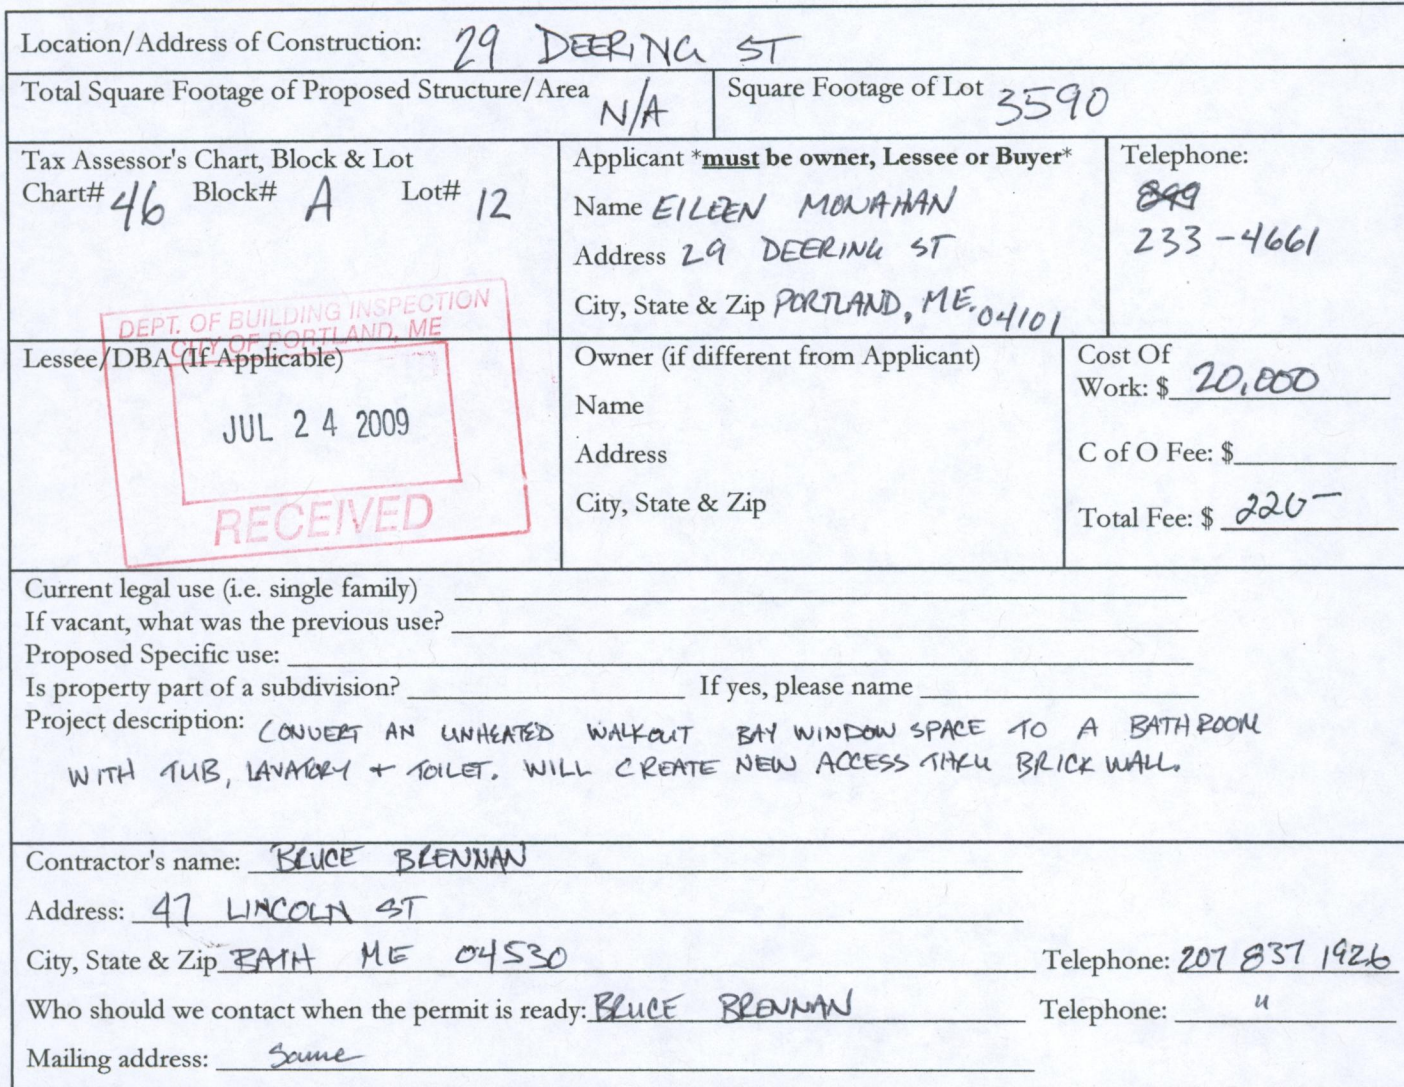 Location/Address of Construction: 29 DEERING ST
Total Square Footage of Proposed Structure/Area N/A
Square Footage of Lot 3590
Tax Assessor's Chart, Block & Lot
Chart# 46 Block# A Lot# 12
Applicant *must be owner, Lessee or Buyer*
Name EILEEN MONAHAN
Address 29 DEERING ST
City, State & Zip PORTLAND, ME. 04101
Telephone:
233-4661
DEPT. OF BUILDING INSPECTION
CITY OF PORTLAND, ME
JUL 24 2009
RECEIVED
Lessee/DBA (If Applicable)
Owner (if different from Applicant)
Name
Address
City, State & Zip
Cost Of
Work: $ 20,000
C of O Fee: $
Total Fee: $ 220-
Current legal use (i.e. single family)
If vacant, what was the previous use?
Proposed Specific use:
Is property part of a subdivision? If yes, please name
Project description: CONVERT AN UNHEATED WALKOUT BAY WINDOW SPACE TO A BATHROOM
WITH TUB, LAVATORY + TOILET. WILL CREATE NEW ACCESS THRU BRICK WALL.
Contractor's name: BRUCE BRENNAN
Address: 47 LINCOLN ST
City, State & Zip BATH ME 04530 Telephone: 207 837 1926
Who should we contact when the permit is ready: BRUCE BRENNAN Telephone: "
Mailing address: Same